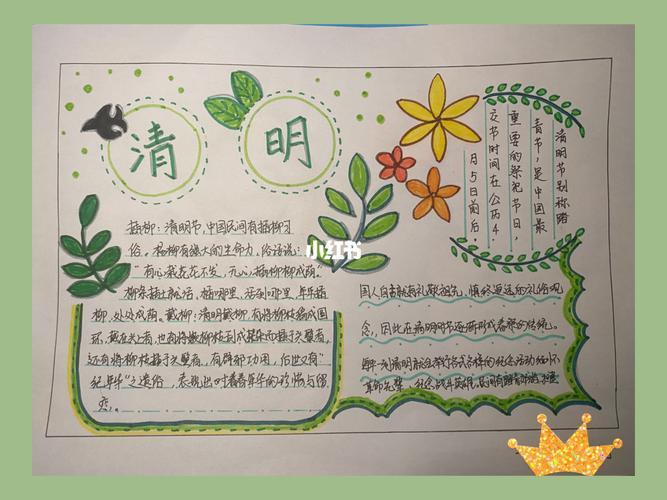 清
明
清明节别称踏
青节,是中国最
重要的祭祀节日,
交节时间在公历4
月5日前后
插柳:清明节,中国民间有插柳习
俗。杨柳有强大的生命力,俗话说:
"有心栽花花不发,无心插柳柳成荫。"
柳条插土就活,插哪里,活到哪里,年年插
柳,处处成荫。戴柳:清明戴柳,有将柳枝编成圆
环,戴在头上者,也有将嫩柳枝
还有将柳枝插于头髻者,有辟邪功用,后世又有"
纪年华"之遗俗,表现出对青春年华的珍惜与留
恋。
小红书
国人自古就有礼敬祖先,慎终追远的礼俗观
念,因此在清明时节逐渐形成春祭的传统。
每年一到清明就会举行各式各样的纪念活动
革命先辈,纪念战斗英雄,民间有踏青